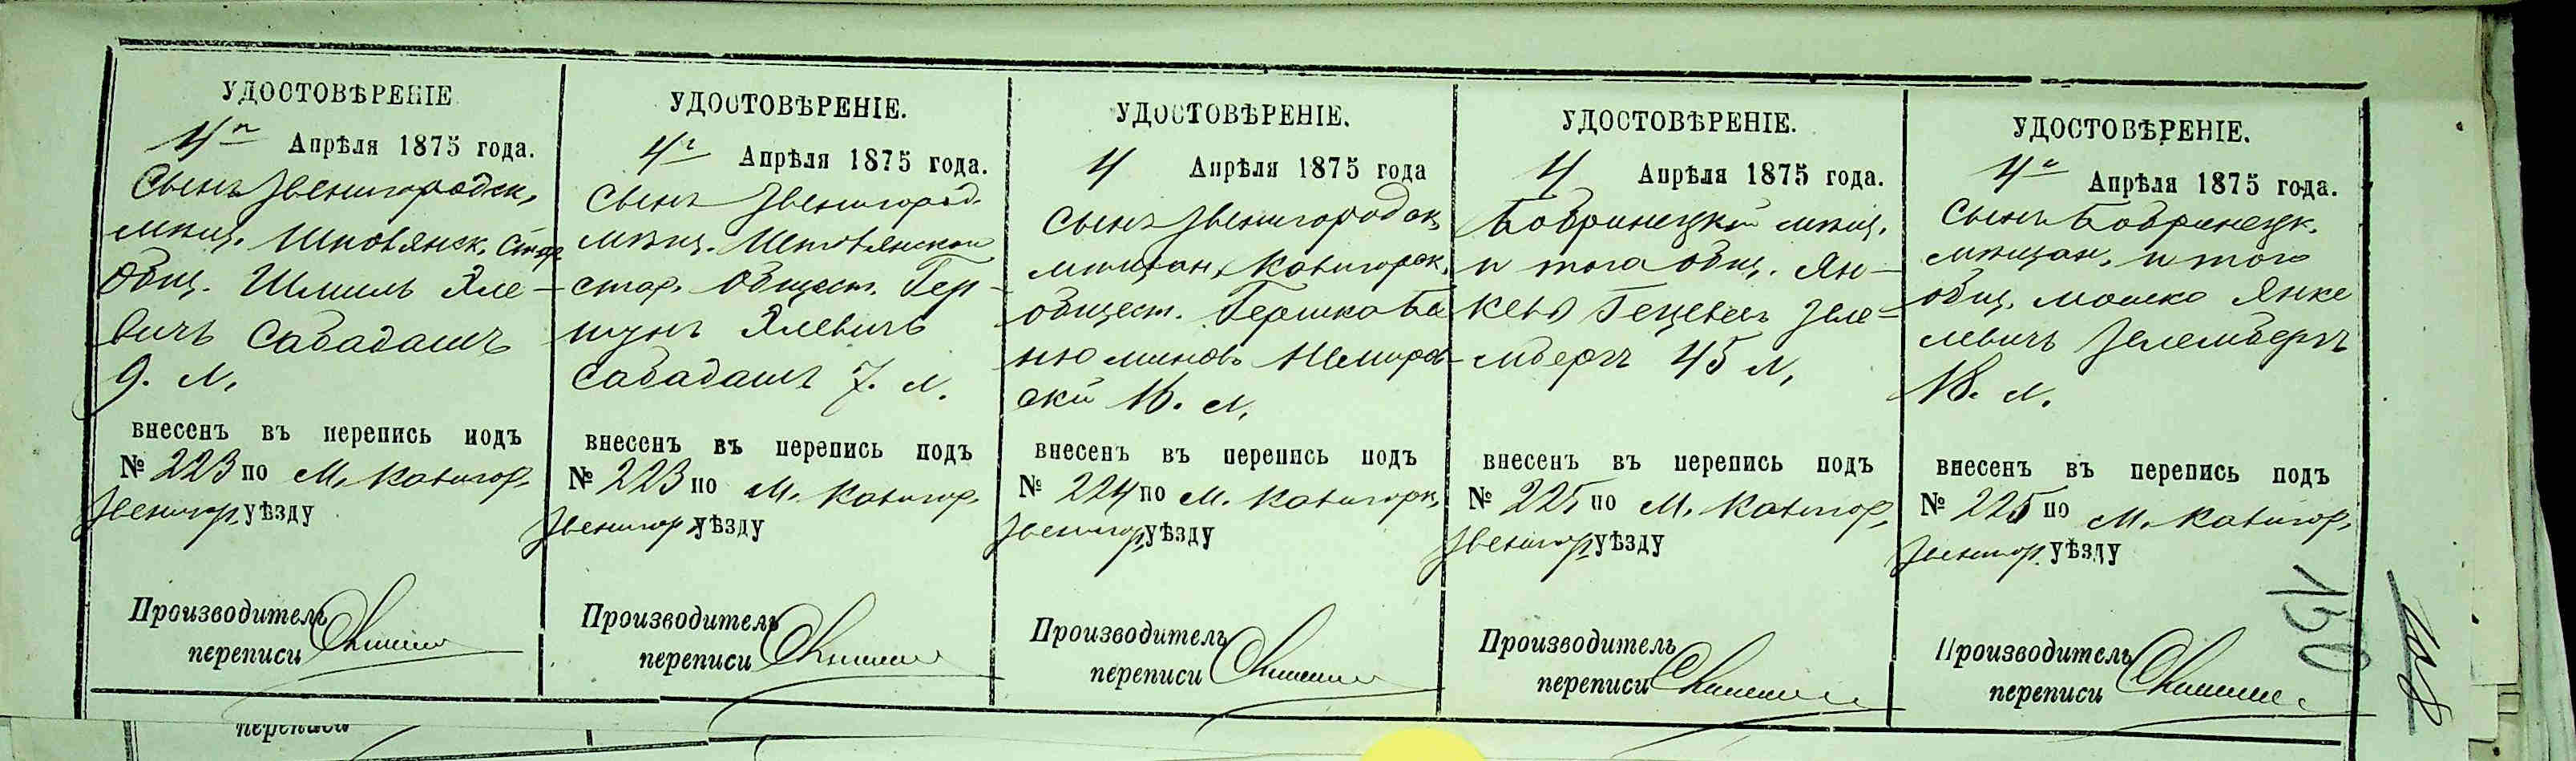 УДОСТОВѢРЕНІЕ
4го Апрѣля 1875 года.
Сынъ Звенигородск.
мѣщ. Шполянск. Стар.
Общ. Шмиль Эле-
вичъ Сабадашъ
9. л.
внесенъ въ перепись подъ
№ 223 по М. Кативор.
Звенигор. уѣзду
Производитель
переписи
УДОСТОВѢРЕНІЕ.
4го Апрѣля 1875 года.
Сынъ Звенигород.
мѣщ. Шполянскаго
стар. Общест. Гер-
шунъ Элевичъ
Сабадашъ 7. л.
внесенъ въ перепись подъ
№ 223 по М. Катигор.
Звенигор. уѣзду
Производитель
переписи
УДОСТОВѢРЕНІЕ.
4 Апрѣля 1875 года
Сынъ Звенигородск.
мѣщан. Катигорск.
общест. Гершко Бе
ніоминовъ Немиров-
скій 16. л.
внесенъ въ перепись подъ
№ 224 по М. Катигорк.
Звенигор. уѣзду
Производитель
переписи
УДОСТОВѢРЕНІЕ.
4 Апрѣля 1875 года.
Бобринецкій мѣщ.
и того общ. Ян-
кель Гецелевъ Зеле-
мбергъ 45 л.
внесенъ въ перепись подъ
№ 225 по М. Катигор.
Звенигор. уѣзду
Производитель
переписи
УДОСТОВѢРЕНІЕ.
4го Апрѣля 1875 года.
Сынъ Бобринецк.
мѣщан. и того
общ. Мошко Янке
левичъ Зелембергъ
18. л.
внесенъ въ перепись подъ
№ 225 по М. Катигор.
Звенигор. уѣзду
Производитель
переписи
150
переписи